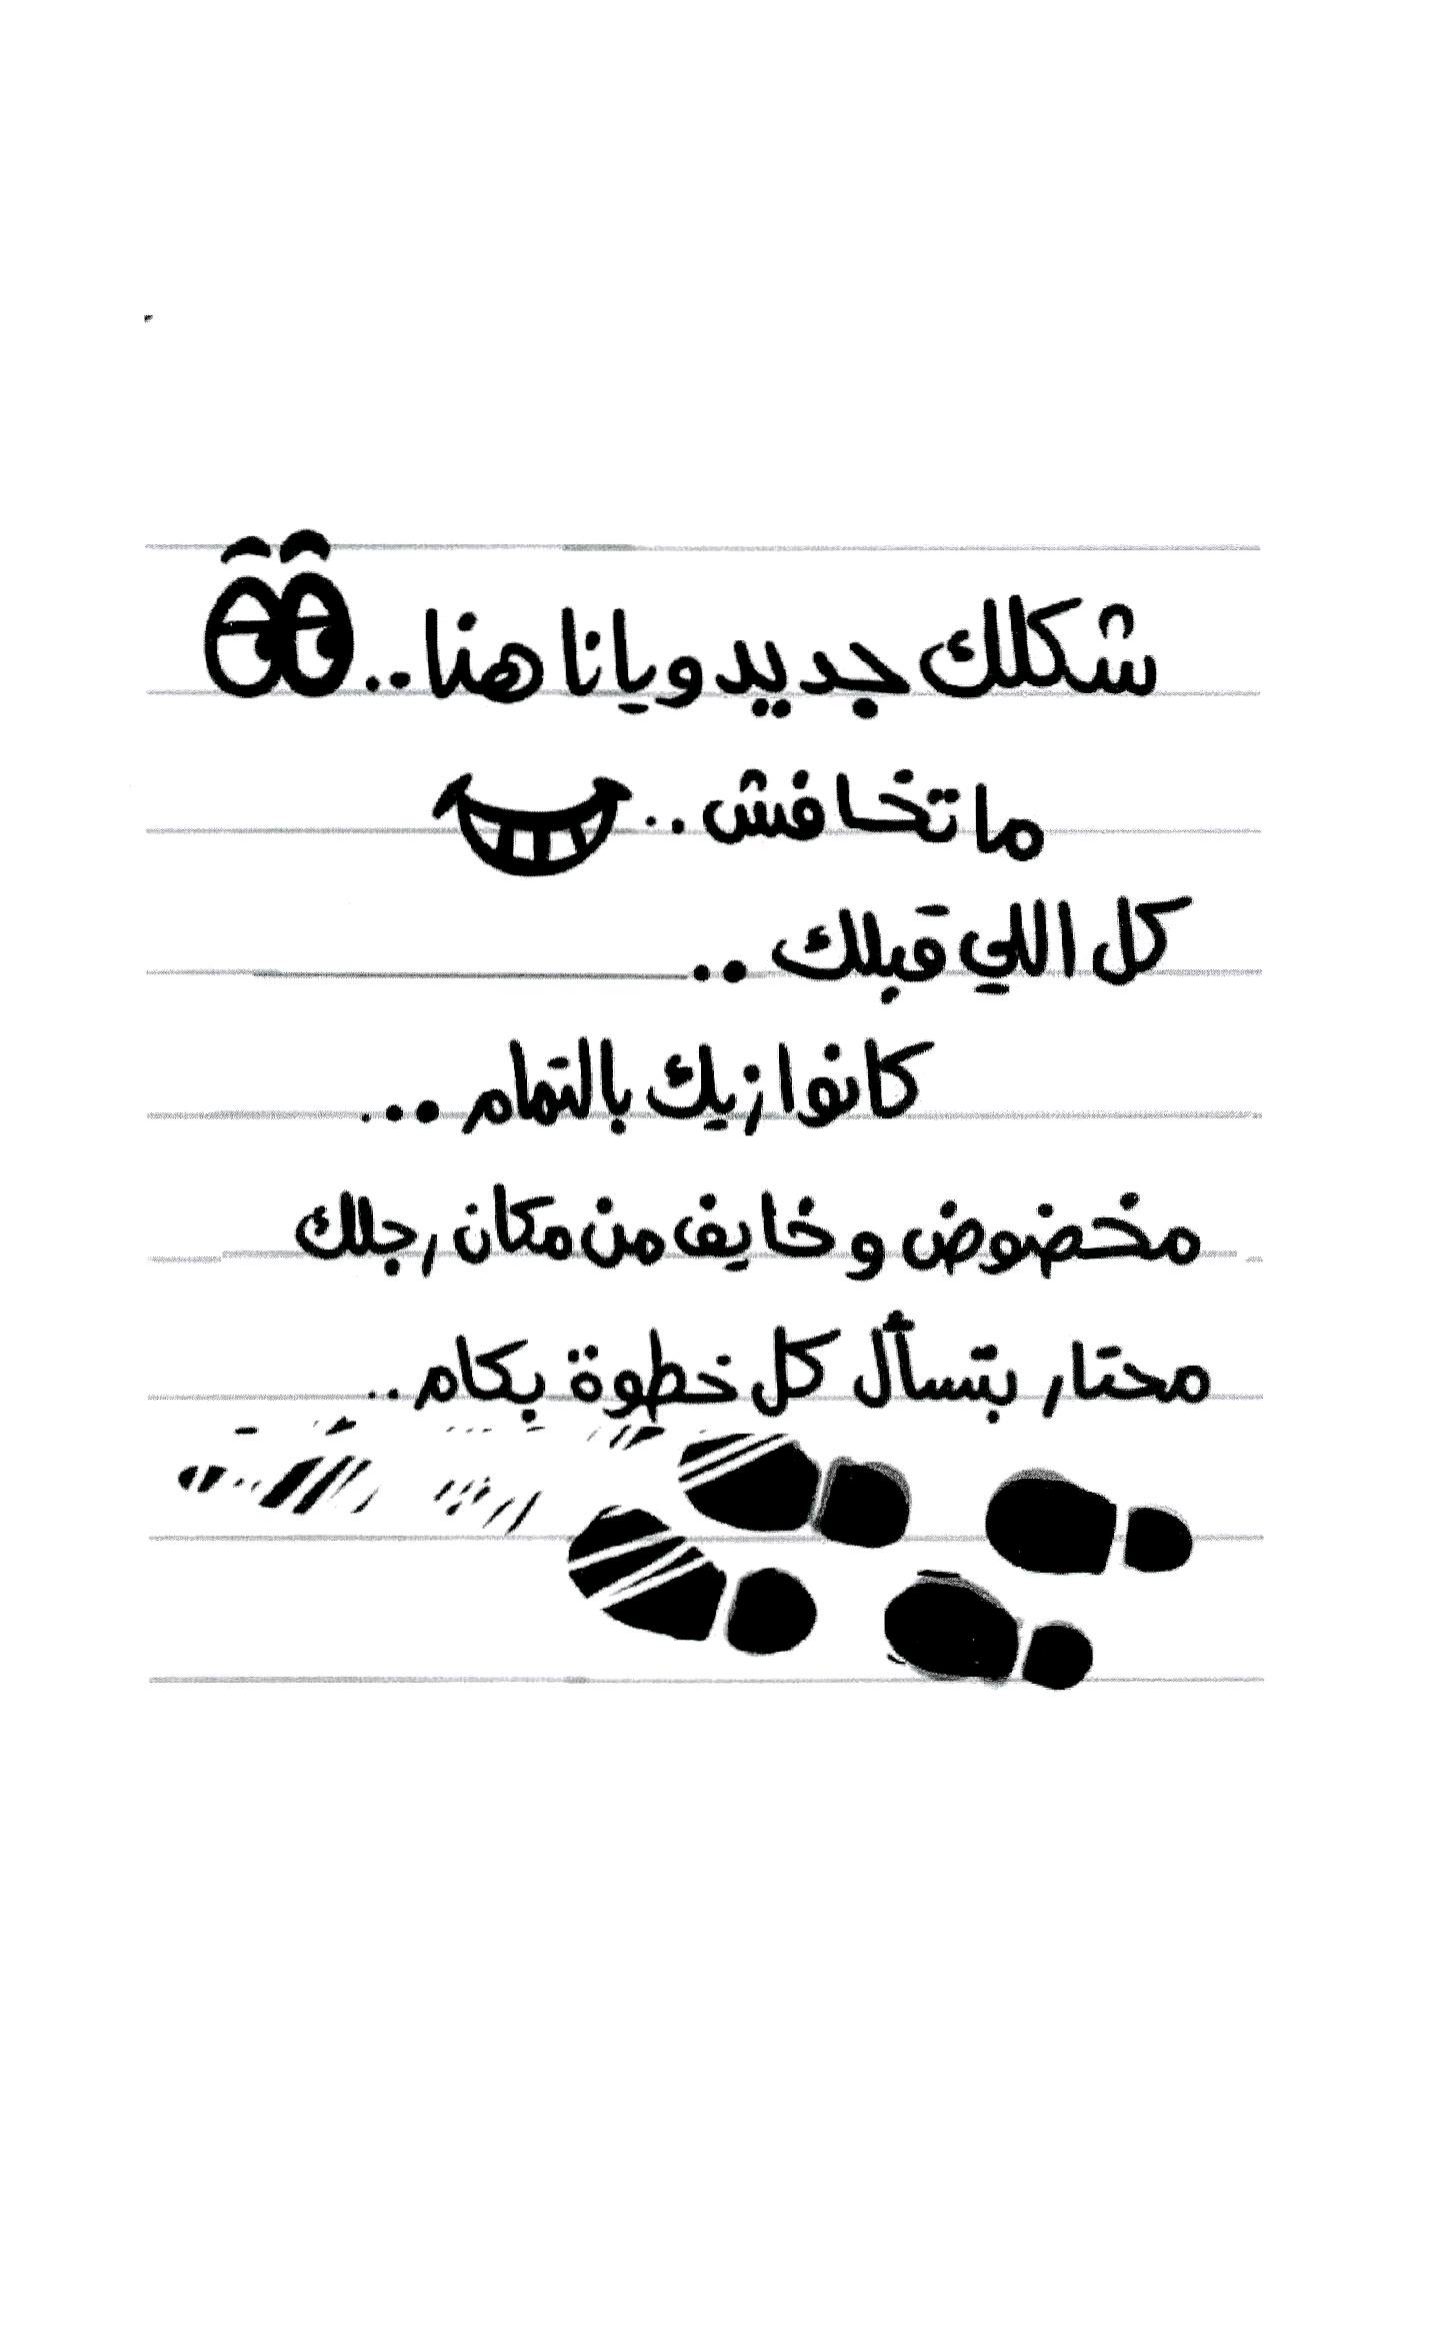 شكلك جديد ويانا هنا..
ماتخافش..
كل اللي قبلك..
كانوا زيك بالتمام...
مخضوض و خايف من مكان رجلك
محتار بتسأل كل خطوة بكام..